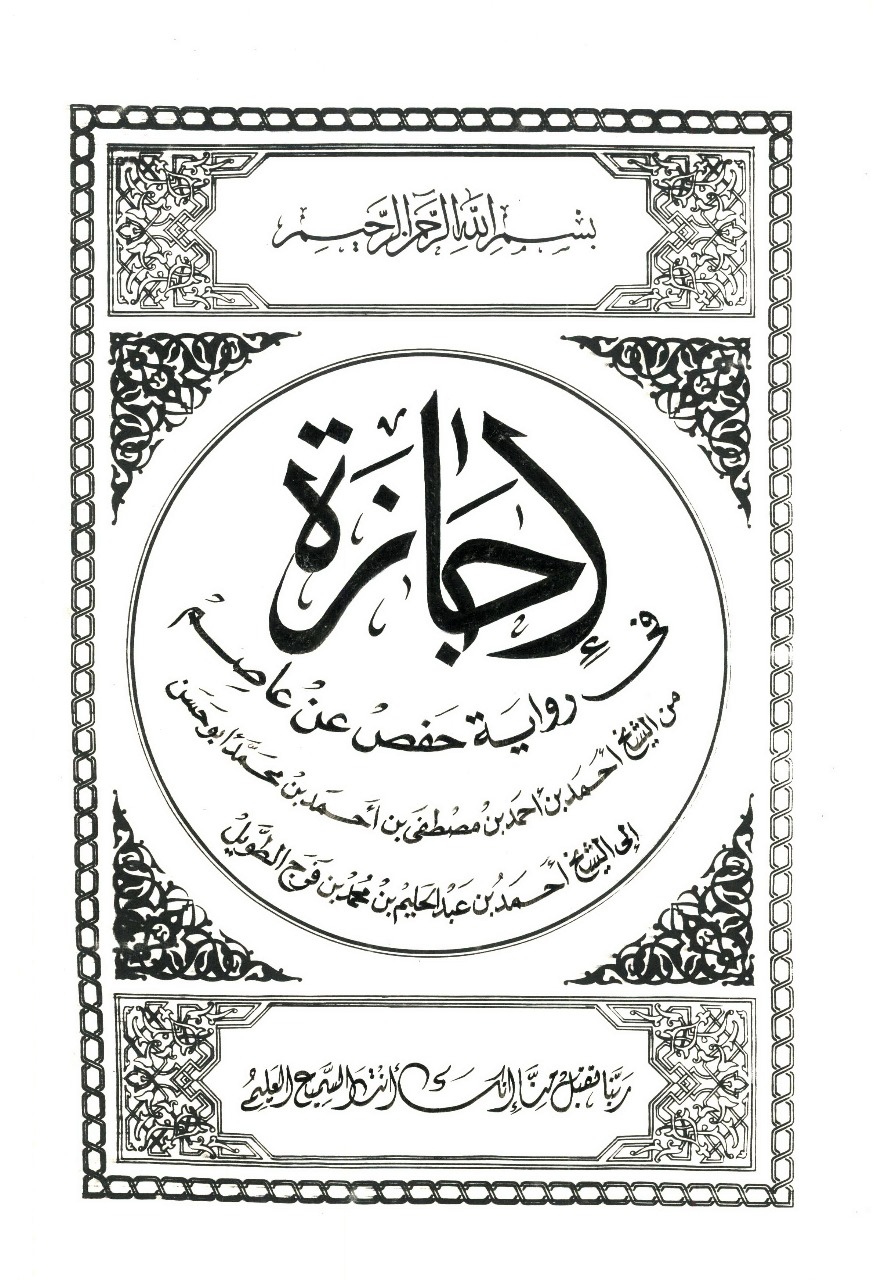 بسم الله الرحمن الرحيم
إجازة
في رواية حفص عن عاصم
من الشيخ أحمد بن أحمد بن مصطفى بن أحمد بن محمد أبو حسن
إلى الشيخ أحمد بن عبد الحليم بن محمد بن فرج الطويل
ربنا تقبل منا إنك أنت السميع العليم